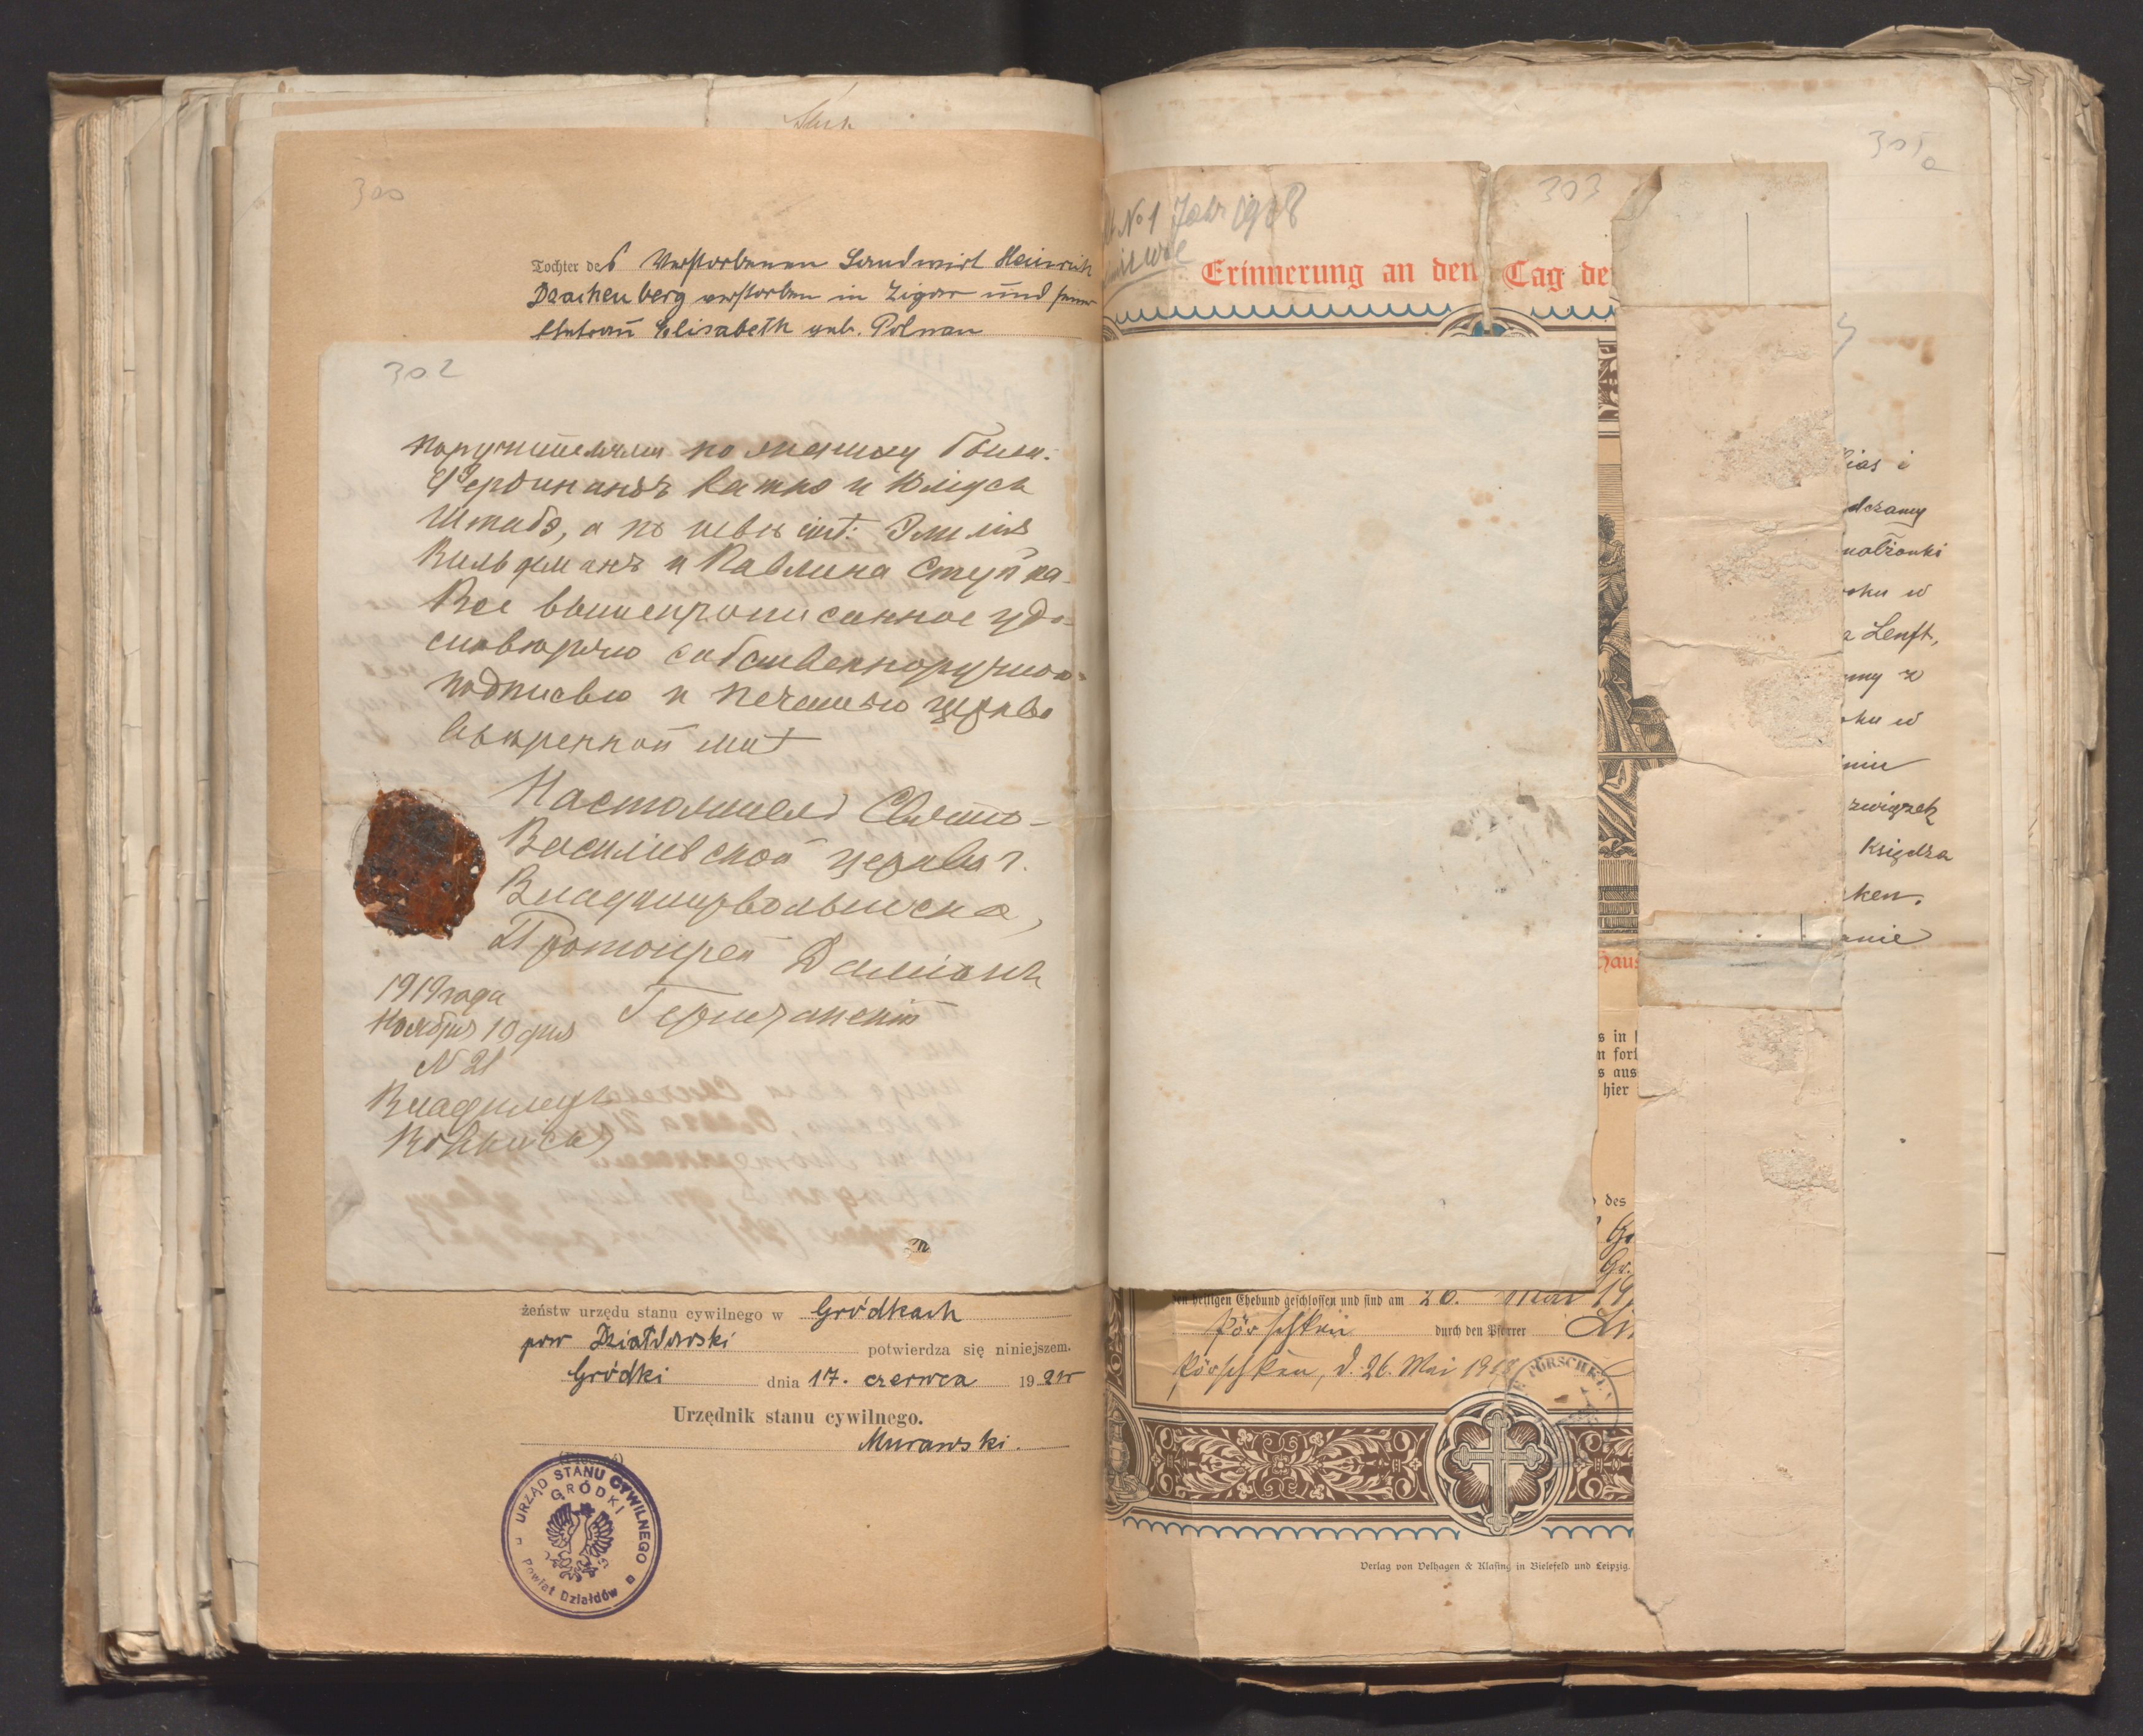 300
Tochter des Verstorbenen Landwirt Heinrich
Drachenberg verstorben in Zigar und seiner
Ehefrau Elisabeth geb. Polnau
302
поручителями по жениху были:
Фердинандъ Катке и Юлиусъ
Штабэ, а по невѣстѣ:
и Павлина
Все вышепрописанное удо-
стовѣряю собственноручною
подписью и печатью церкви
ввѣренной мнѣ
Настоятель Свято-
Василіевской церкви г.
Владимірволынска,
Протоіерей Даміанъ
1919 года
Ноября 10 дня
N 21
Владиміръ
Волынскъ
żeństw urzędu stanu cywilnego w Gródkach
pow Działdowski potwierdza się niniejszem.
Gródki dnia 17. czerwca 19
Urzędnik stanu cywilnego.
Murawski.
URZĄD STANU CYWILNEGO
GRÓDKI
Powiat Działdów
305a
303
No 1 Jahr 1918
Erinnerung an den Tag de
Haus
s in
n fort
s aus
hier
des
Gr.
en heiligen Ehebund geschlossen und sind am 26. Mai 19
Pörschken durch den Pfarrer
Pörschken, d. 26. Mai 191
PÖRSCHKE
Verlag von Velhagen & Klasing in Bielefeld und Leipzig.
ias i
dczamy
małżonki
oku w
a Lenft,
my z
oku w
niu
związek
księdza
ken.
anie